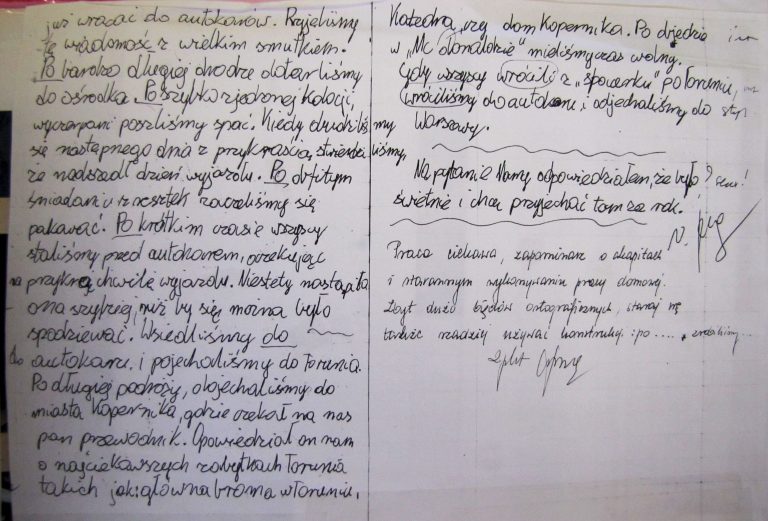 już wracać do autokarów. Przyjeliśmy
tę wiadomość z wielkim smutkiem.
Po bardzo długiej drodze dotarliśmy
do ośrodka. Po szybko zjedzonej kolacji,
wyczerpani poszliśmy spać. Kiedy obudziliśmy
się następnego dnia z przykrością, stwierdziliśmy,
że nadszedł dzień wyjazdu. Po obfitym
śniadaniu z resztek zaczeliśmy się
pakować. Po krótkim czasie wszyscy
staliśmy przed autokarem, oczekując
na przykrą chwilę wyjazdu. Niestety nastąpiła
ona szybciej, niż by się można było
spodziewać. Wsiedliśmy do
autokaru i pojechaliśmy do Torunia.
Po długiej podróży, dojechaliśmy do
miasta Kopernika, gdzie czekał na nas
pan przewodnik. Opowiedział on nam
o najciekawszych zabytkach Torunia
takich jak: główna brama w Toruniu,
Katedra, czy dom Kopernika. Po objedzie
w „Mc donaldzie" mieliśmy czas wolny.
Gdy wszyscy wrócili z „spacerku" po Toruniu,
wróciliśmy do autokaru i odjechaliśmy do
Warszawy.
Na pytanie Mamy odpowiedziałem, że było
świetnie i chcę przyjechać tam za rok.
Praca ciekawa, zapominasz o akapitach
i starannym wykonywaniu pracy domowej.
Zbyt dużo błędów ortograficznych, staraj się
także rzadziej używać konstrukcji: po ....., zrobiliśmy...